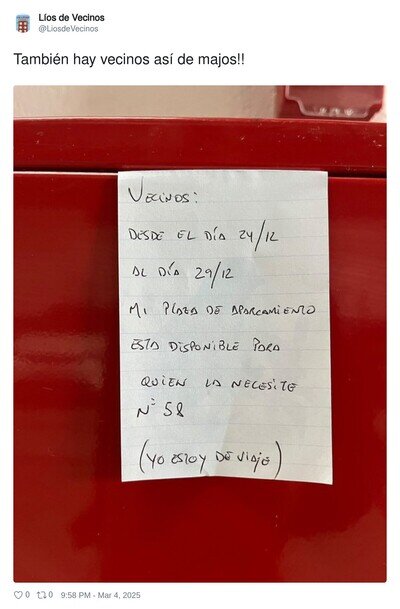 Líos de Vecinos
@LiosdeVecinos
También hay vecinos así de majos!!
VECINOS:
DESDE EL DÍA 24/12
AL DÍA 29/12
MI PLAZA DE APARCAMIENTO
ESTA DISPONIBLE PARA
QUIEN LA NECESITE
Nº 58
(YO ESTOY DE VIAJE)
0 0 9:58 PM - Mar 4, 2025